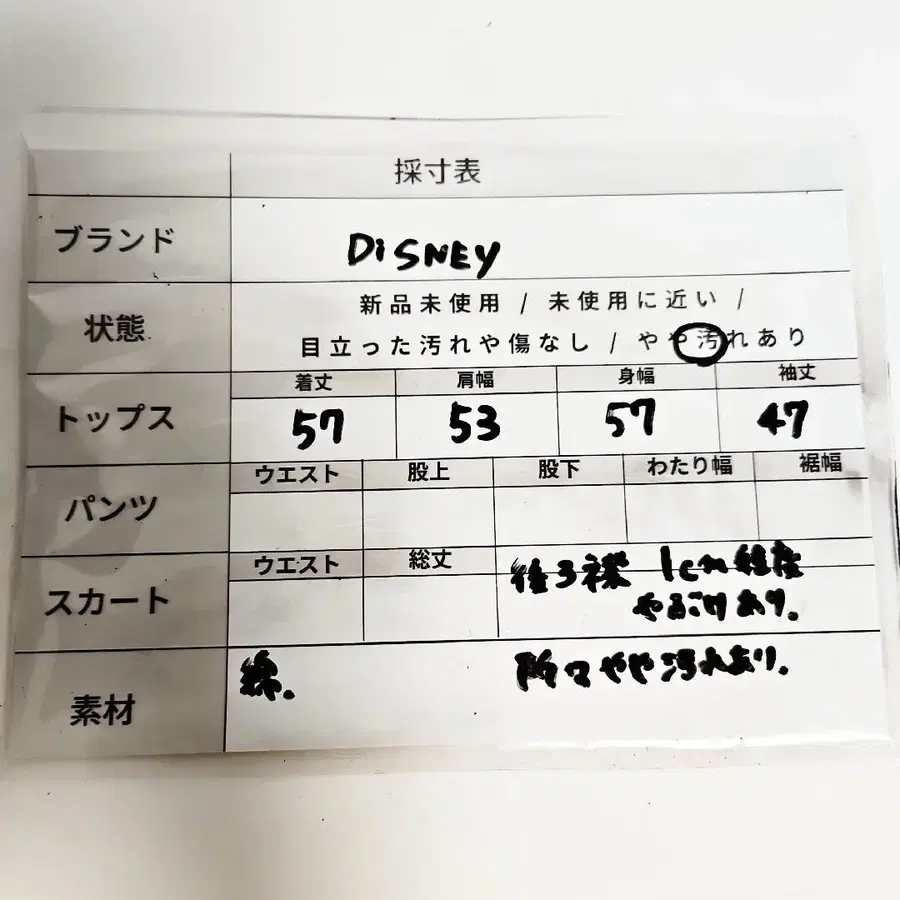 採寸表
ブランド
DiSNEY
状態
新品未使用 / 未使用に近い /
目立った汚れや傷なし / やや汚れあり
トップス
着丈 肩幅 身幅 袖丈
57 53 57 47
パンツ
ウエスト 股上 股下 わたり幅 裾幅
スカート
ウエスト 総丈
後ろ襟 1cm程度
やぶけあり。
素材
綿。
所々やや汚れあり。